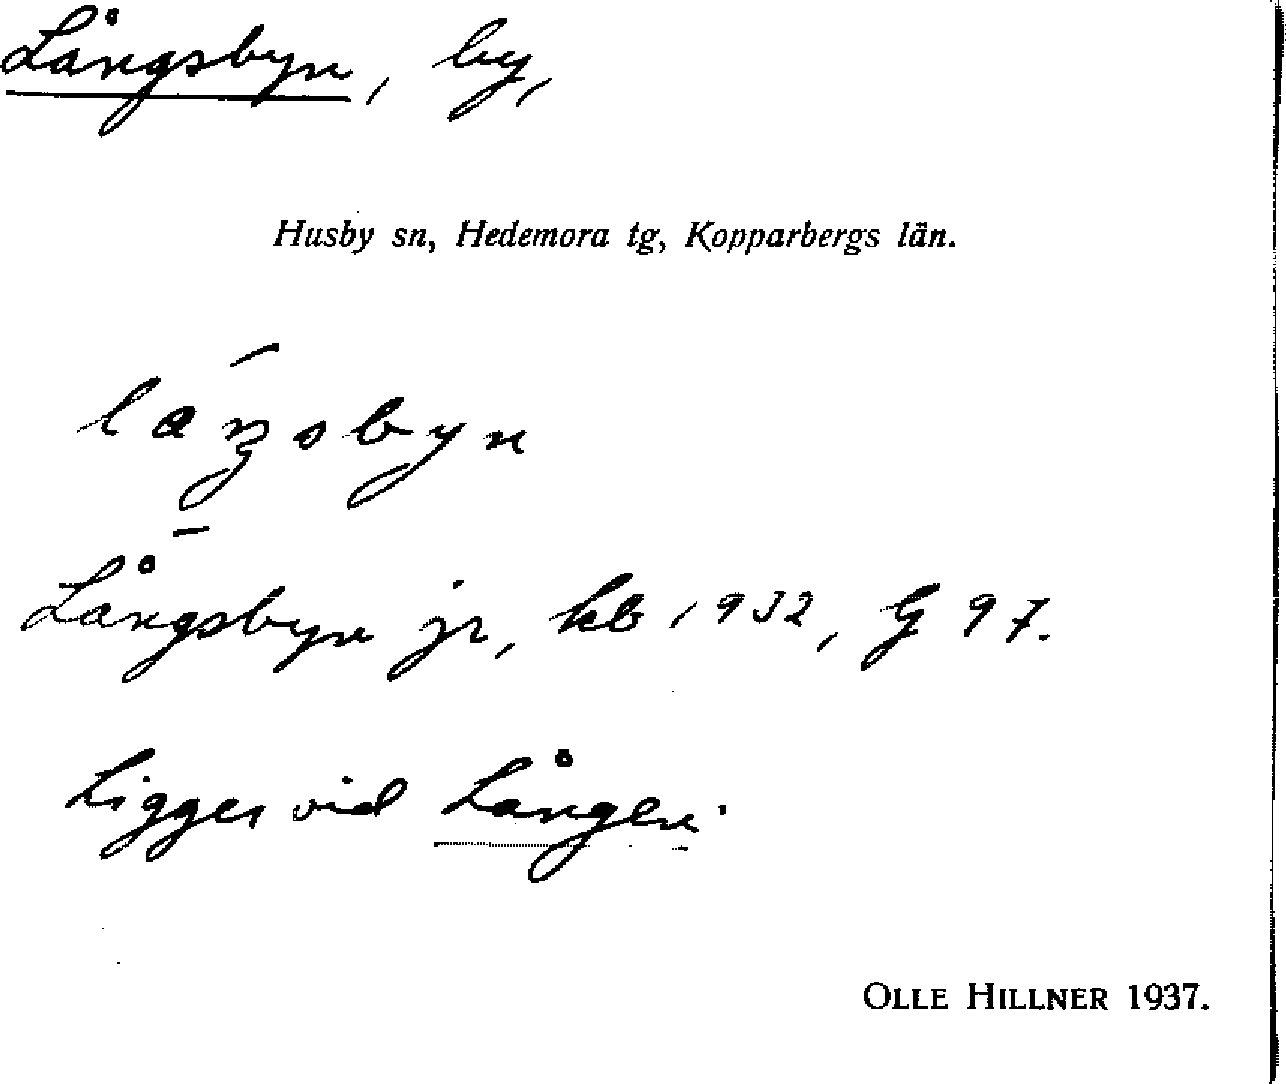 Långsbyn, by,
Husby sn, Hedemora tg, Kopparbergs län.
Långsbyn jr, kb 1932, G 97.
Ligger vid Lången.
OLLE HILLNER 1937.